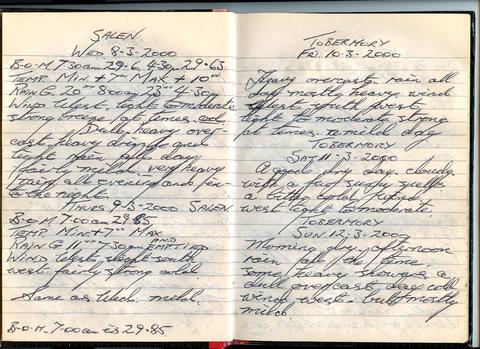 SALEN
WED 8-3-2000
B-O-M 7.30am 29-6 4-30pm 29-63
TEMP MIN. + 7°° MAX + 10°°
RAIN G 20°° 8.00am 23°° 4-30pm
WIND West, light to moderate
strong breeze at times. cool
Dull, heavy over-
cast, heavy drizzle and
light rain all day
fairly mild. very heavy
rain all evening and
the night.
THURS 9-3-2000 SALEN
B-O-M 7-00am 29-85
TEMP MIN + 7°° MAX
RAIN G 11°° 7.30pm AND EMPTIED
WIND West, slight south
west fairly strong cold.
Same as Wed. mild.
B-O-M. 7-00am is 29-85
TOBERMORY
FRI. 10-3-2000
Heavy overcast, rain all
day mostly heavy, wind
West south west,
light to moderate, strong
at times. mild day
TOBERMORY
SAT 11-3-2000
A good dry day. cloudy
with a few sunny spells
a biting cold wind
west light to moderate.
TOBERMORY
SUN. 12-3-2000
Morning dry, afternoon
rain all the time
some heavy showers, a
dull overcast day cold
wind, west. but mostly
mild